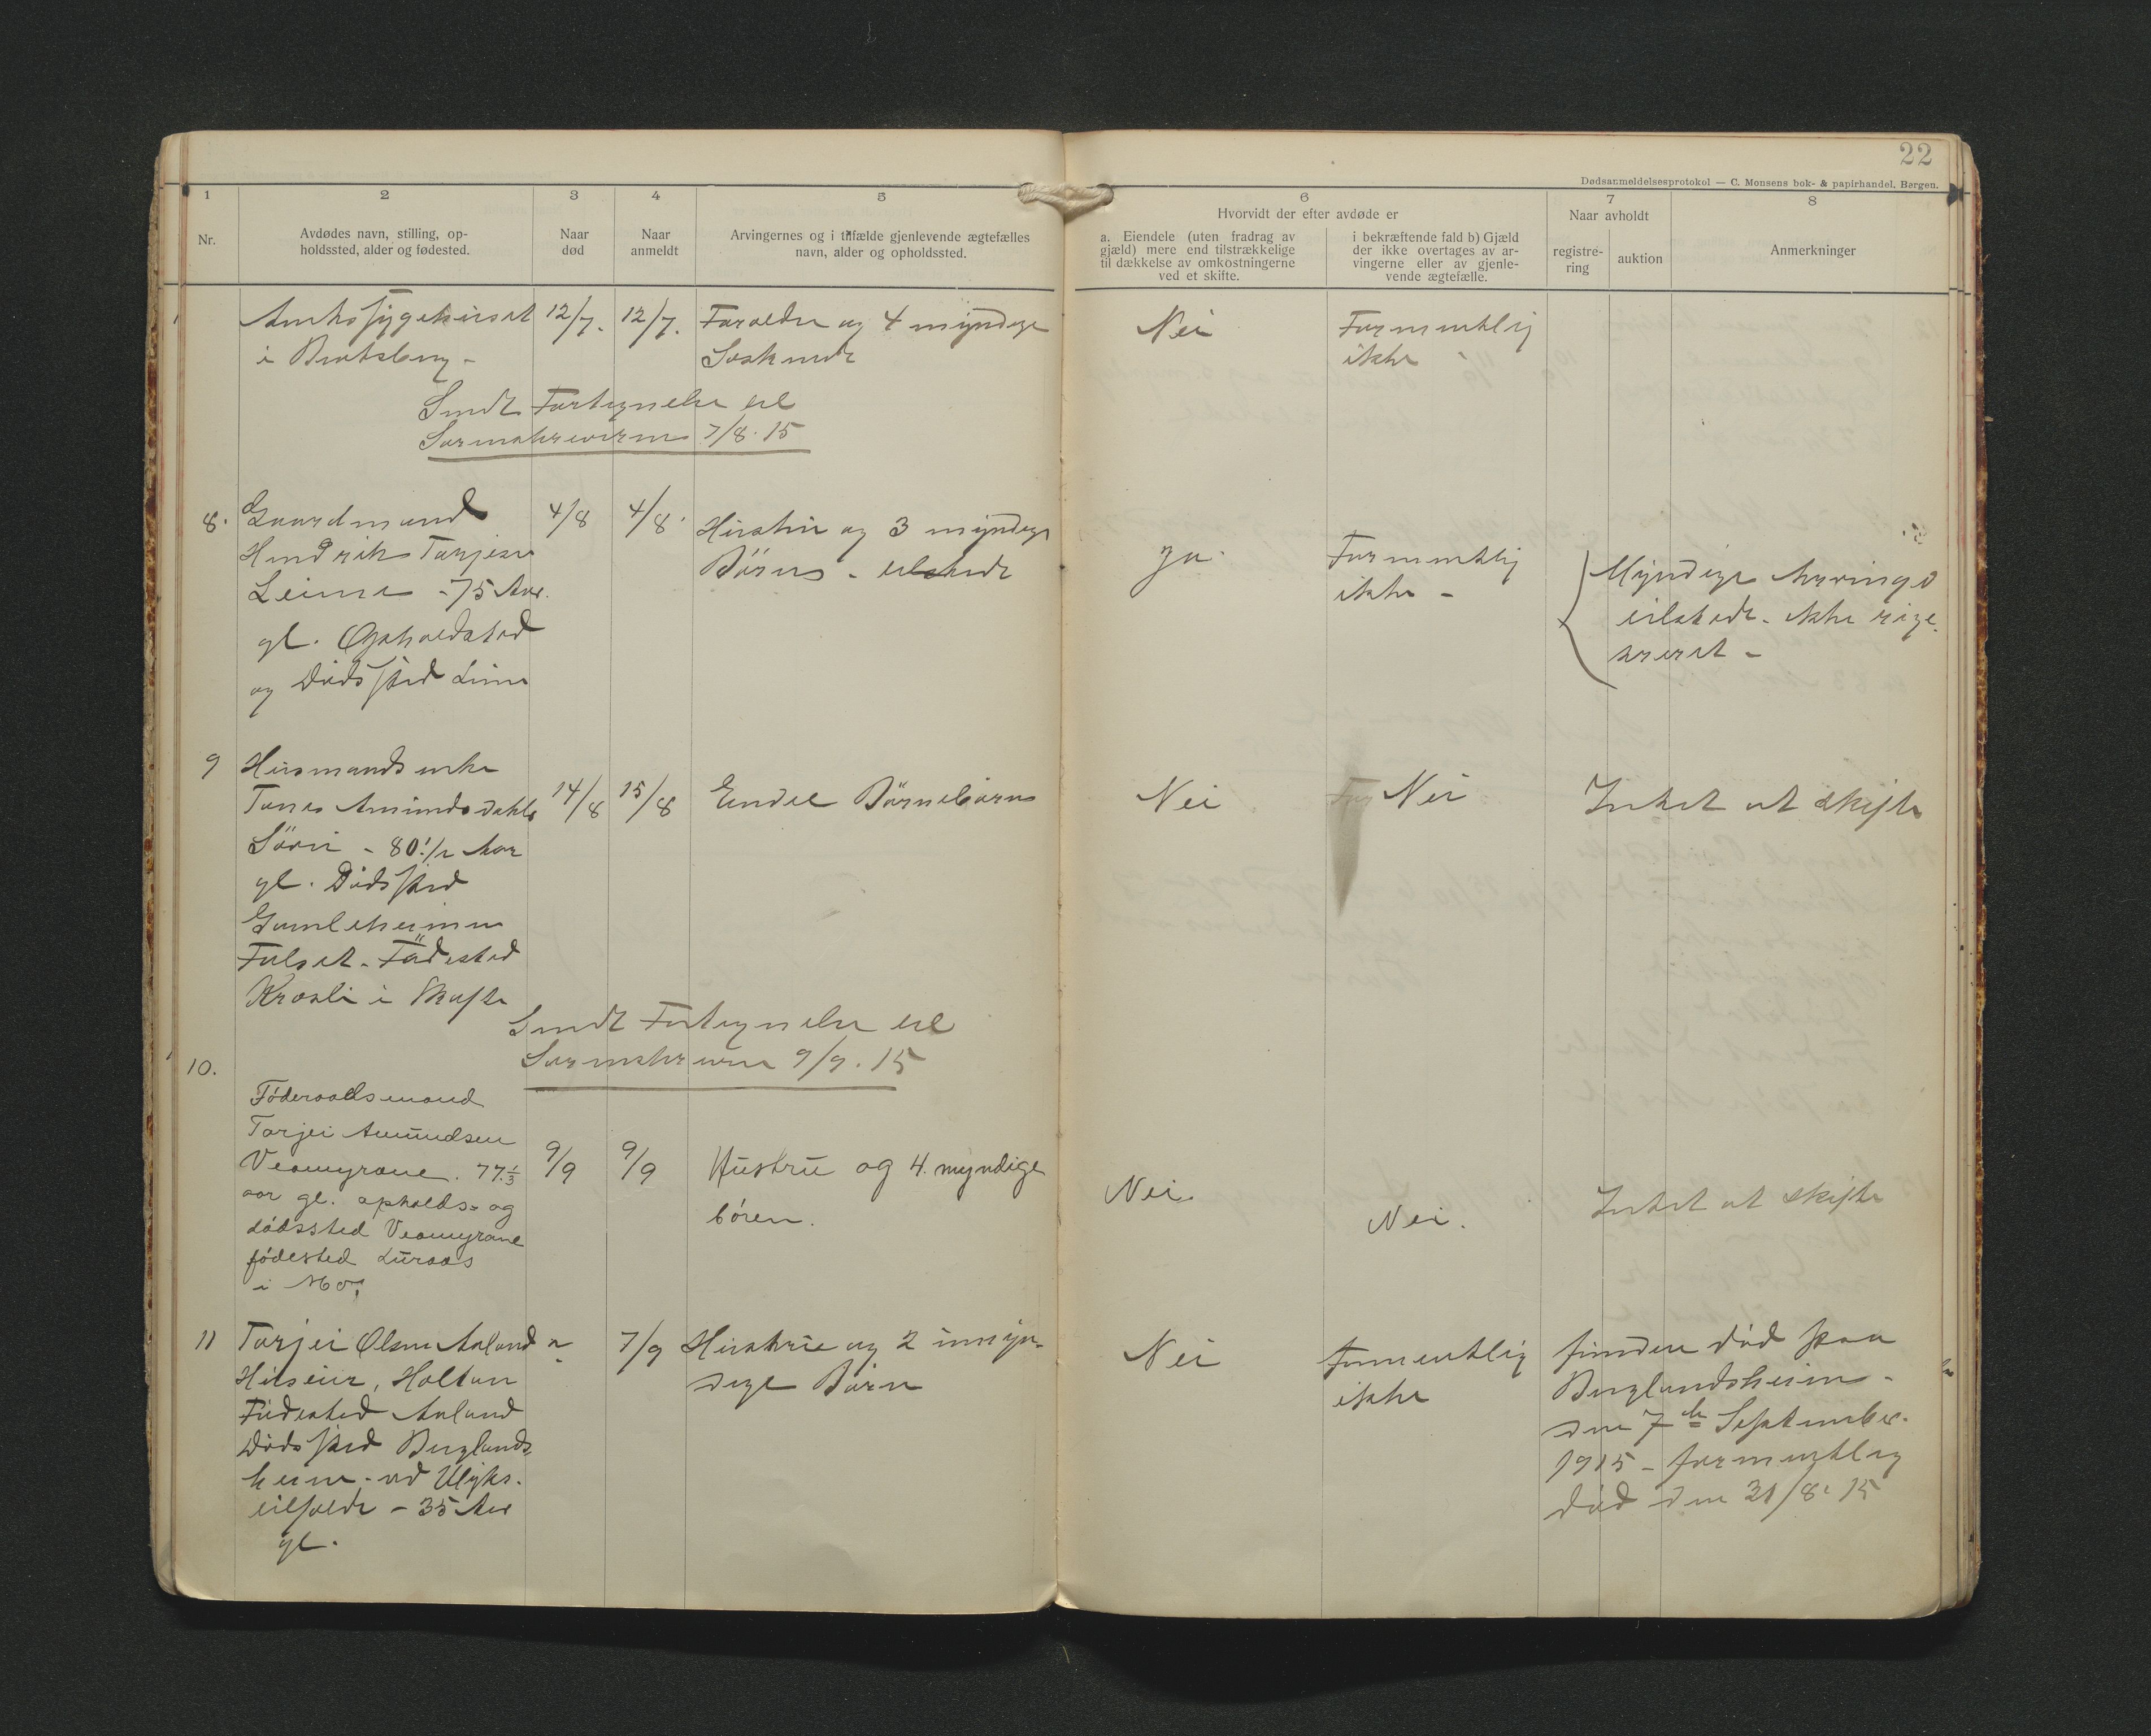 22
Dødsanmeldelsesprotokol — C. Monsens bok- & papirhandel, Bergen.
1
2
3
4
5
6
7
8
Nr.
Avdødes navn, stilling, op-
holdssted, alder og fødested.
Naar
død
Naar
anmeldt
Arvingernes og i tilfælde gjenlevende ægtefælles
navn, alder og opholdssted.
Hvorvidt der efter avdøde er
a. Eiendele (uten fradrag av
gjæld) mere end tilstrækkelige
til dækkelse av omkostningerne
ved et skifte.
i bekræftende fald b) Gjæld
der ikke overtages av ar-
vingerne eller av gjenle-
vende ægtefælle.
Naar avholdt
registre-
ring
auktion
Anmerkninger
Amtssygehuset
i Bratsberg -
12/7.
12/7.
Forældre og 4 myndige
Søskende
Nei
Formentlig
ikke
Sendt Fortegnelse til
Sorenskriveren 7/8. 15
8.
Gaardmand
Hendrik Tarjesen
Leime - 75 Aar
gl. Opholdsted
og Dødssted Lime
4/8
4/8
Hustru og 3 myndige
Börn - tilstede
ja
Formentlig
ikke -
Myndige Arvinger
tilstede - ikke regi-
streret -
9
Husmandsenke
Tone Amundsdatter
- 80 1/2 Aar
gl. Dødssted
Gamleheimen
Fødested
i Skafse
14/8
15/8
Endel Börnebörn
Nei
Nei
Intet at skifte
Sendt Fortegnelse til
Sorenskriveren 9/9. 15
10.
Föderaadsmand
Tarjei Amundsen
Veamyrane. 77 1/3
aar gl. opholds- og
dödssted Veamyrane
födested Luraas
i Mo.
9/9
9/9
Hustru og 4 myndige
bören.
Nei.
Nei.
Intet at skifte
11
Tarjei Olsen Aaland
Huseier, Holtan
Födested Aaland
Dødssted Berglands-
heim - ved Ulykes-
tilfælde - 35 Aar
gl.
7/9
Hustru og 2 umyn-
dige Börn
Nei
Formentlig
ikke
funden död paa
Berglandsheim -
den 7de September
1915 - formentlig
död den 31/8. 15